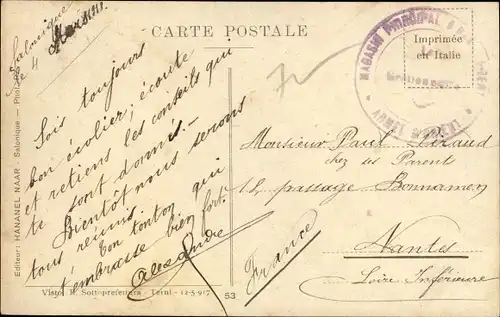 CARTE POSTALE
Salonique
le 4
Sois toujours
bon écolier; écoute
et retiens les conseils qui
te sont donnés. —
Bientôt nous serons
tous réunis
bon tonton qui
t'embrasse bien fort.
Alexandre
MAGASIN PRINCIPAL
ARMÉE D'ORIENT
Imprimée
en Italie
Monsieur Paul
chez ses Parents
12, passage Bonnamen
Nantes
Loire Inférieure
France
Editeur: HANANEL NAAR - Salonique - Photo
Visto R. Sottoprefettura - Terni - 12-5-917
53